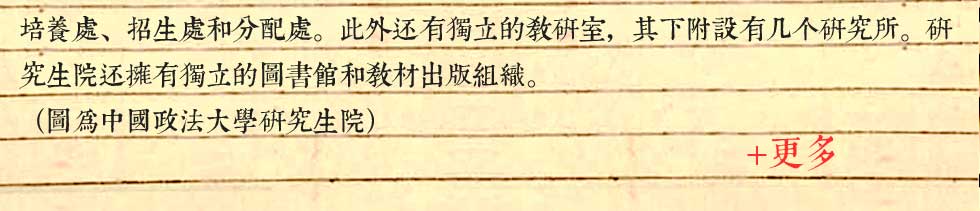 培養處、招生處和分配處。此外还有獨立的教研室，其下附設有几个研究所。研
究生院还擁有獨立的圖書館和教材出版組織。
（圖爲中國政法大學研究生院）
+更多